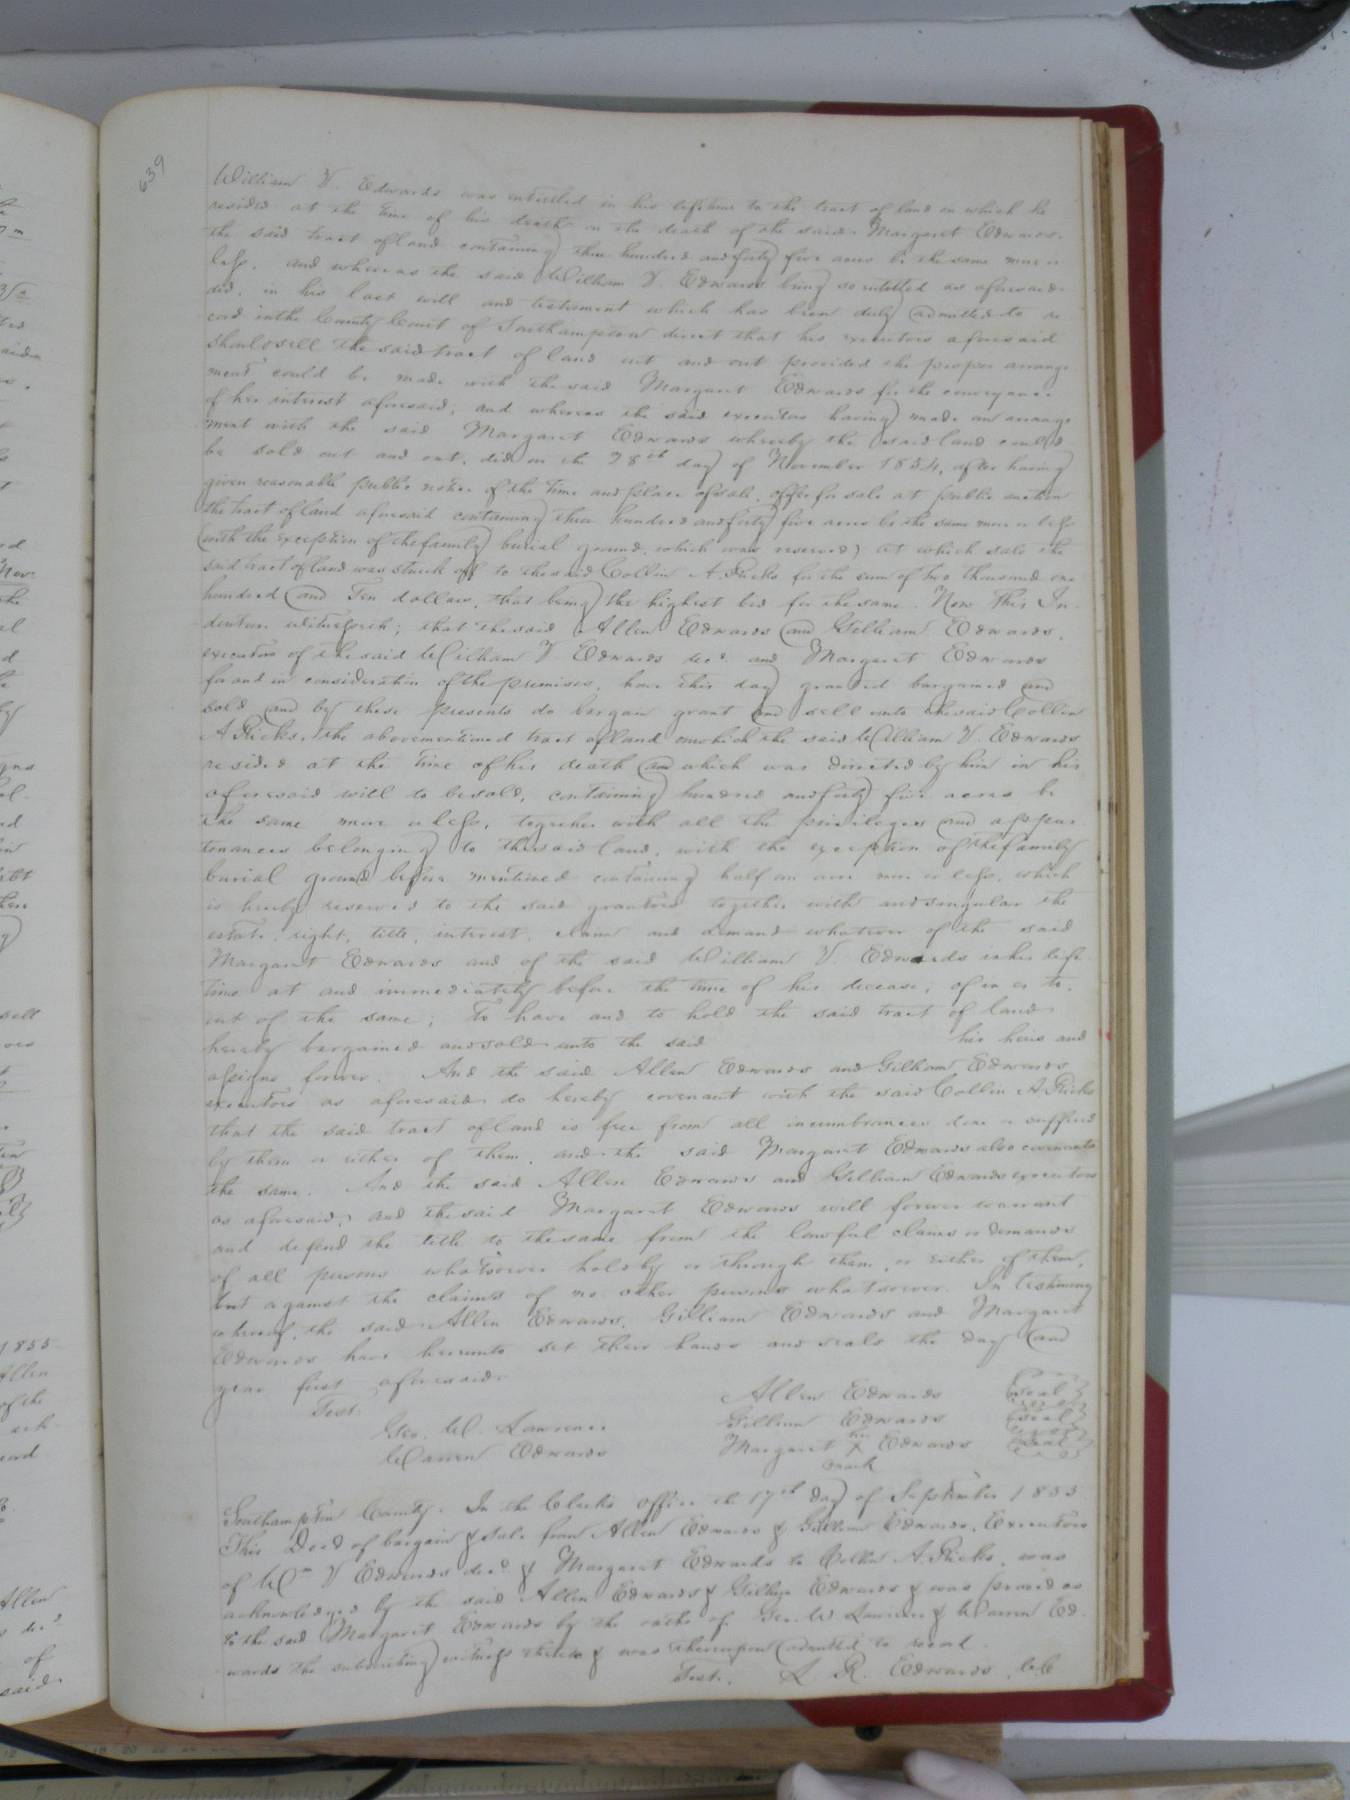 639
William V. Edwards was intitled in his lifetime to the tract of land on which he
resided at the time of his death on the death of the said Margaret Edwards.
the said tract of land containing three hundred and forty five acres be the same more or
less. and whereas the said William V. Edwards being so intitled as aforesaid
did, in his last will and testament which has been duly admitted to re
cord in the County Court of Southampton direct that his executors aforesaid
should sell the said tract of land out and out provided the proper arrange
ment could be made with the said Margaret Edwards for the conveyance
of her interest aforesaid; and whereas the said executors having made an arrange
ment with the said Margaret Edwards whereby the said land could
be sold out and out, did on the 28th day of November 1854, after having
given reasonable public notice of the time and place of sale, offer for sale at public auction
the tract of land aforesaid containing three hundred and forty five acres be the same more or less
(with the exception of the family burial ground, which was reserved) at which sale the
said tract of land was struck off to the said Collin A. Ricks for the sum of two thousand one
hundred and Ten dollars, that being the highest bid for the same. Now this In
denture witnesseth; that the said Allen Edwards and Gilliam Edwards,
executors of the said William V Edwards decd. and Margaret Edwards
for and in consideration of the premises, have this day granted bargained and
sold and by these presents do bargain grant and sell unto the said Collin
A. Ricks, the abovementioned tract of land on which the said William V. Edwards
resided at the time of his death and which was directed by him in his
aforesaid will to be sold, containing hundred and forty five acres be
the same more or less, together with all the privileges and appur
tenances belonging to the said land, with the exception of the family
burial ground before mentioned containing half an acre more or less, which
is hereby reserved to the said grantors together with and singular the
estate, right, title, interest, claim and demand whatever of the said
Margaret Edwards and of the said William V. Edwards in his life
time at and immediately before the time of his decease, of in or to,
out of the same; To have and to hold the said tract of land
hereby bargained and sold unto the said his heirs and
assigns forever. And the said Allen Edwards and Gilliam Edwards
executors as aforesaid do hereby covenant with the said Collin A. Ricks
that the said tract of land is free from all incumbrances done or suffered
by them or either of them, and the said Margaret Edwards also covenants
the same. And the said Allen Edwards and Gilliam Edwards executors
as aforesaid, and the said Margaret Edwards will forever warrant
and defend the title to the same from the lawful claims or demands
of all persons whatsoever holdby or through them, or either of them,
but against the claims of no other persons whatsoever. In testimony
whereof, the said Allen Edwards, Gilliam Edwards and Margaret
Edwards have hereunto set their hands and seals the day and
year first aforesaid.
Test. Allen Edwards seal
Geo. W. Lawrence Gilliam Edwards seal
Warren Edwards Margaret her X Edwards seal
mark
Southampton County. In the Clerk's office the 17th day of September 1855
This Deed of bargain & sale from Allen Edwards & Gilliam Edwards, Executors
of Wm V Edwards decd. & Margaret Edwards to Collin A. Ricks, was
acknowledged by the said Allen Edwards & Gilliam Edwards & was proved as
to the said Margaret Edwards by the oaths of Geo. W Lawrence & Warren Ed
wards the subscribing witness thereto & was thereupon admitted to record
Test. L. R. Edwards, CC